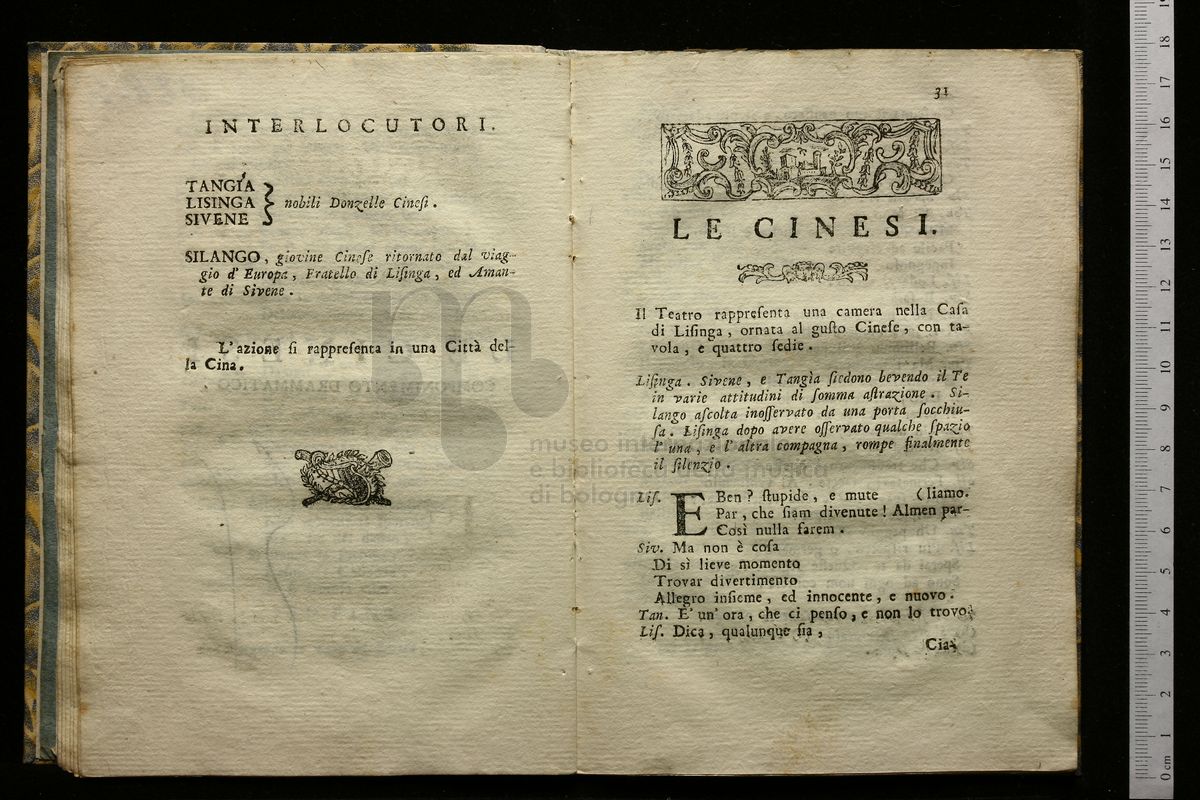 INTERLOCUTORI.
TANGÍA
LISINGA
SIVENE
nobili Donzelle Cinesi.
SILANGO, giovine Cinese ritornato dal viag-
gio d' Europa, Fratello di Lisinga, ed Aman-
te di Sivene.
L'azione si rappresenta in una Città del-
la Cina.
31
LE CINESI.
Il Teatro rappresenta una camera nella Casa
di Lisinga, ornata al gusto Cinese, con ta-
vola, e quattro sedie.
Lisinga. Sivene, e Tangìa siedono bevendo il Te
in varie attitudini di somma astrazione. Si-
lango ascolta inosservato da una porta socchiu-
sa. Lisinga dopo avere osservato qualche spazio
l' una, e l' altra compagna, rompe finalmente
il silenzio.
Lis. E Ben? stupide, e mute (liamo.
Par, che siam divenute! Almen par-
Così nulla farem.
Siv. Ma non è cosa
Di sì lieve momento
Trovar divertimento
Allegro insieme, ed innocente, e nuovo.
Tan. E' un' ora, che ci penso, e non lo trovo.
Lis. Dica, qualunque sia,
Cia-
museo internazionale
e biblioteca della musica
di bologna
0 cm 1 2 3 4 5 6 7 8 9 10 11 12 13 14 15 16 17 18 19